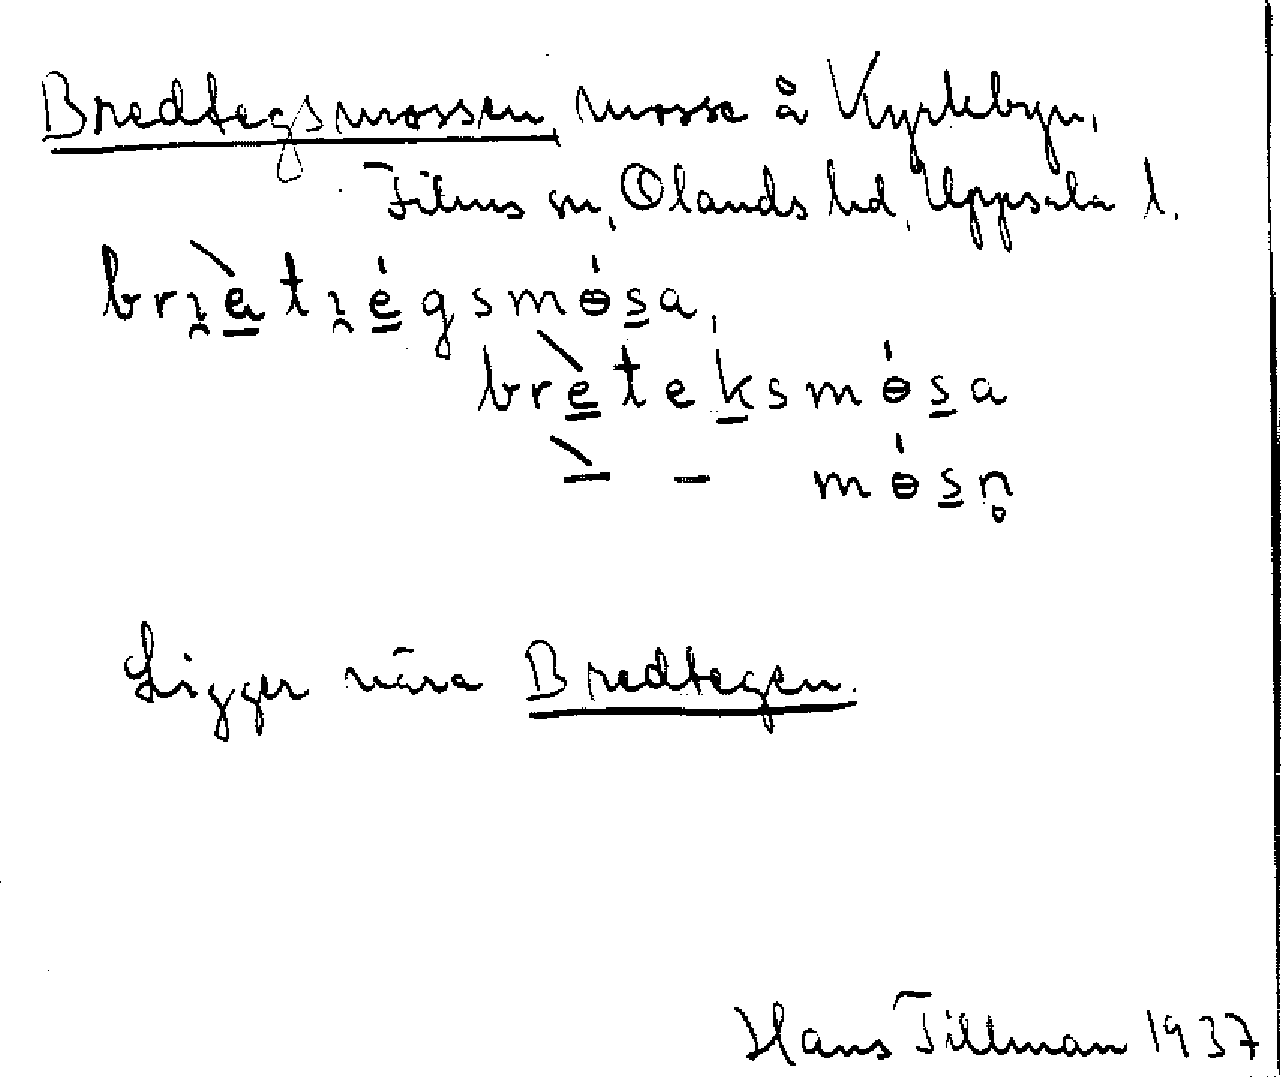 Bredtegsmossen, mosse å Kyrkbyn,
Films sn, Olands hd, Uppsala l.
brɿὲtɿégsmɵ́sa,
brèteksmɵ́sa
– – mɵ́sn̥
Ligger nära Bredtegen.
Hans Tillman 1937